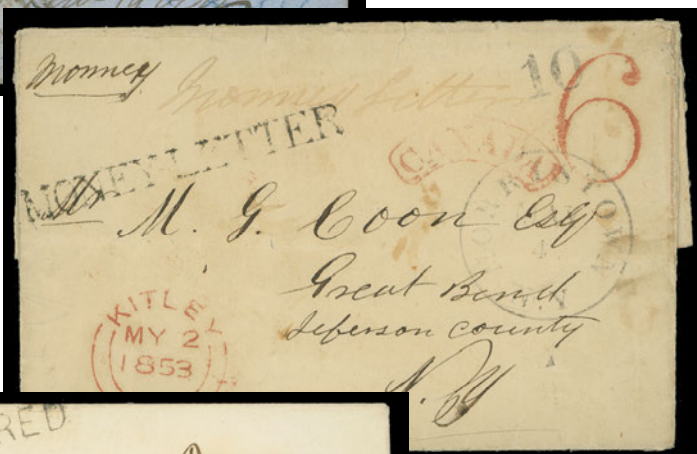 Monney
Monney Letter
10
6
MONEY-LETTER
CANADA
MORRISTOWN
N.Y
Mr
M. G. Coon Esqr
Great Bend
Jeferson county
N. Y
KITLEY
MY 2
1853
RED